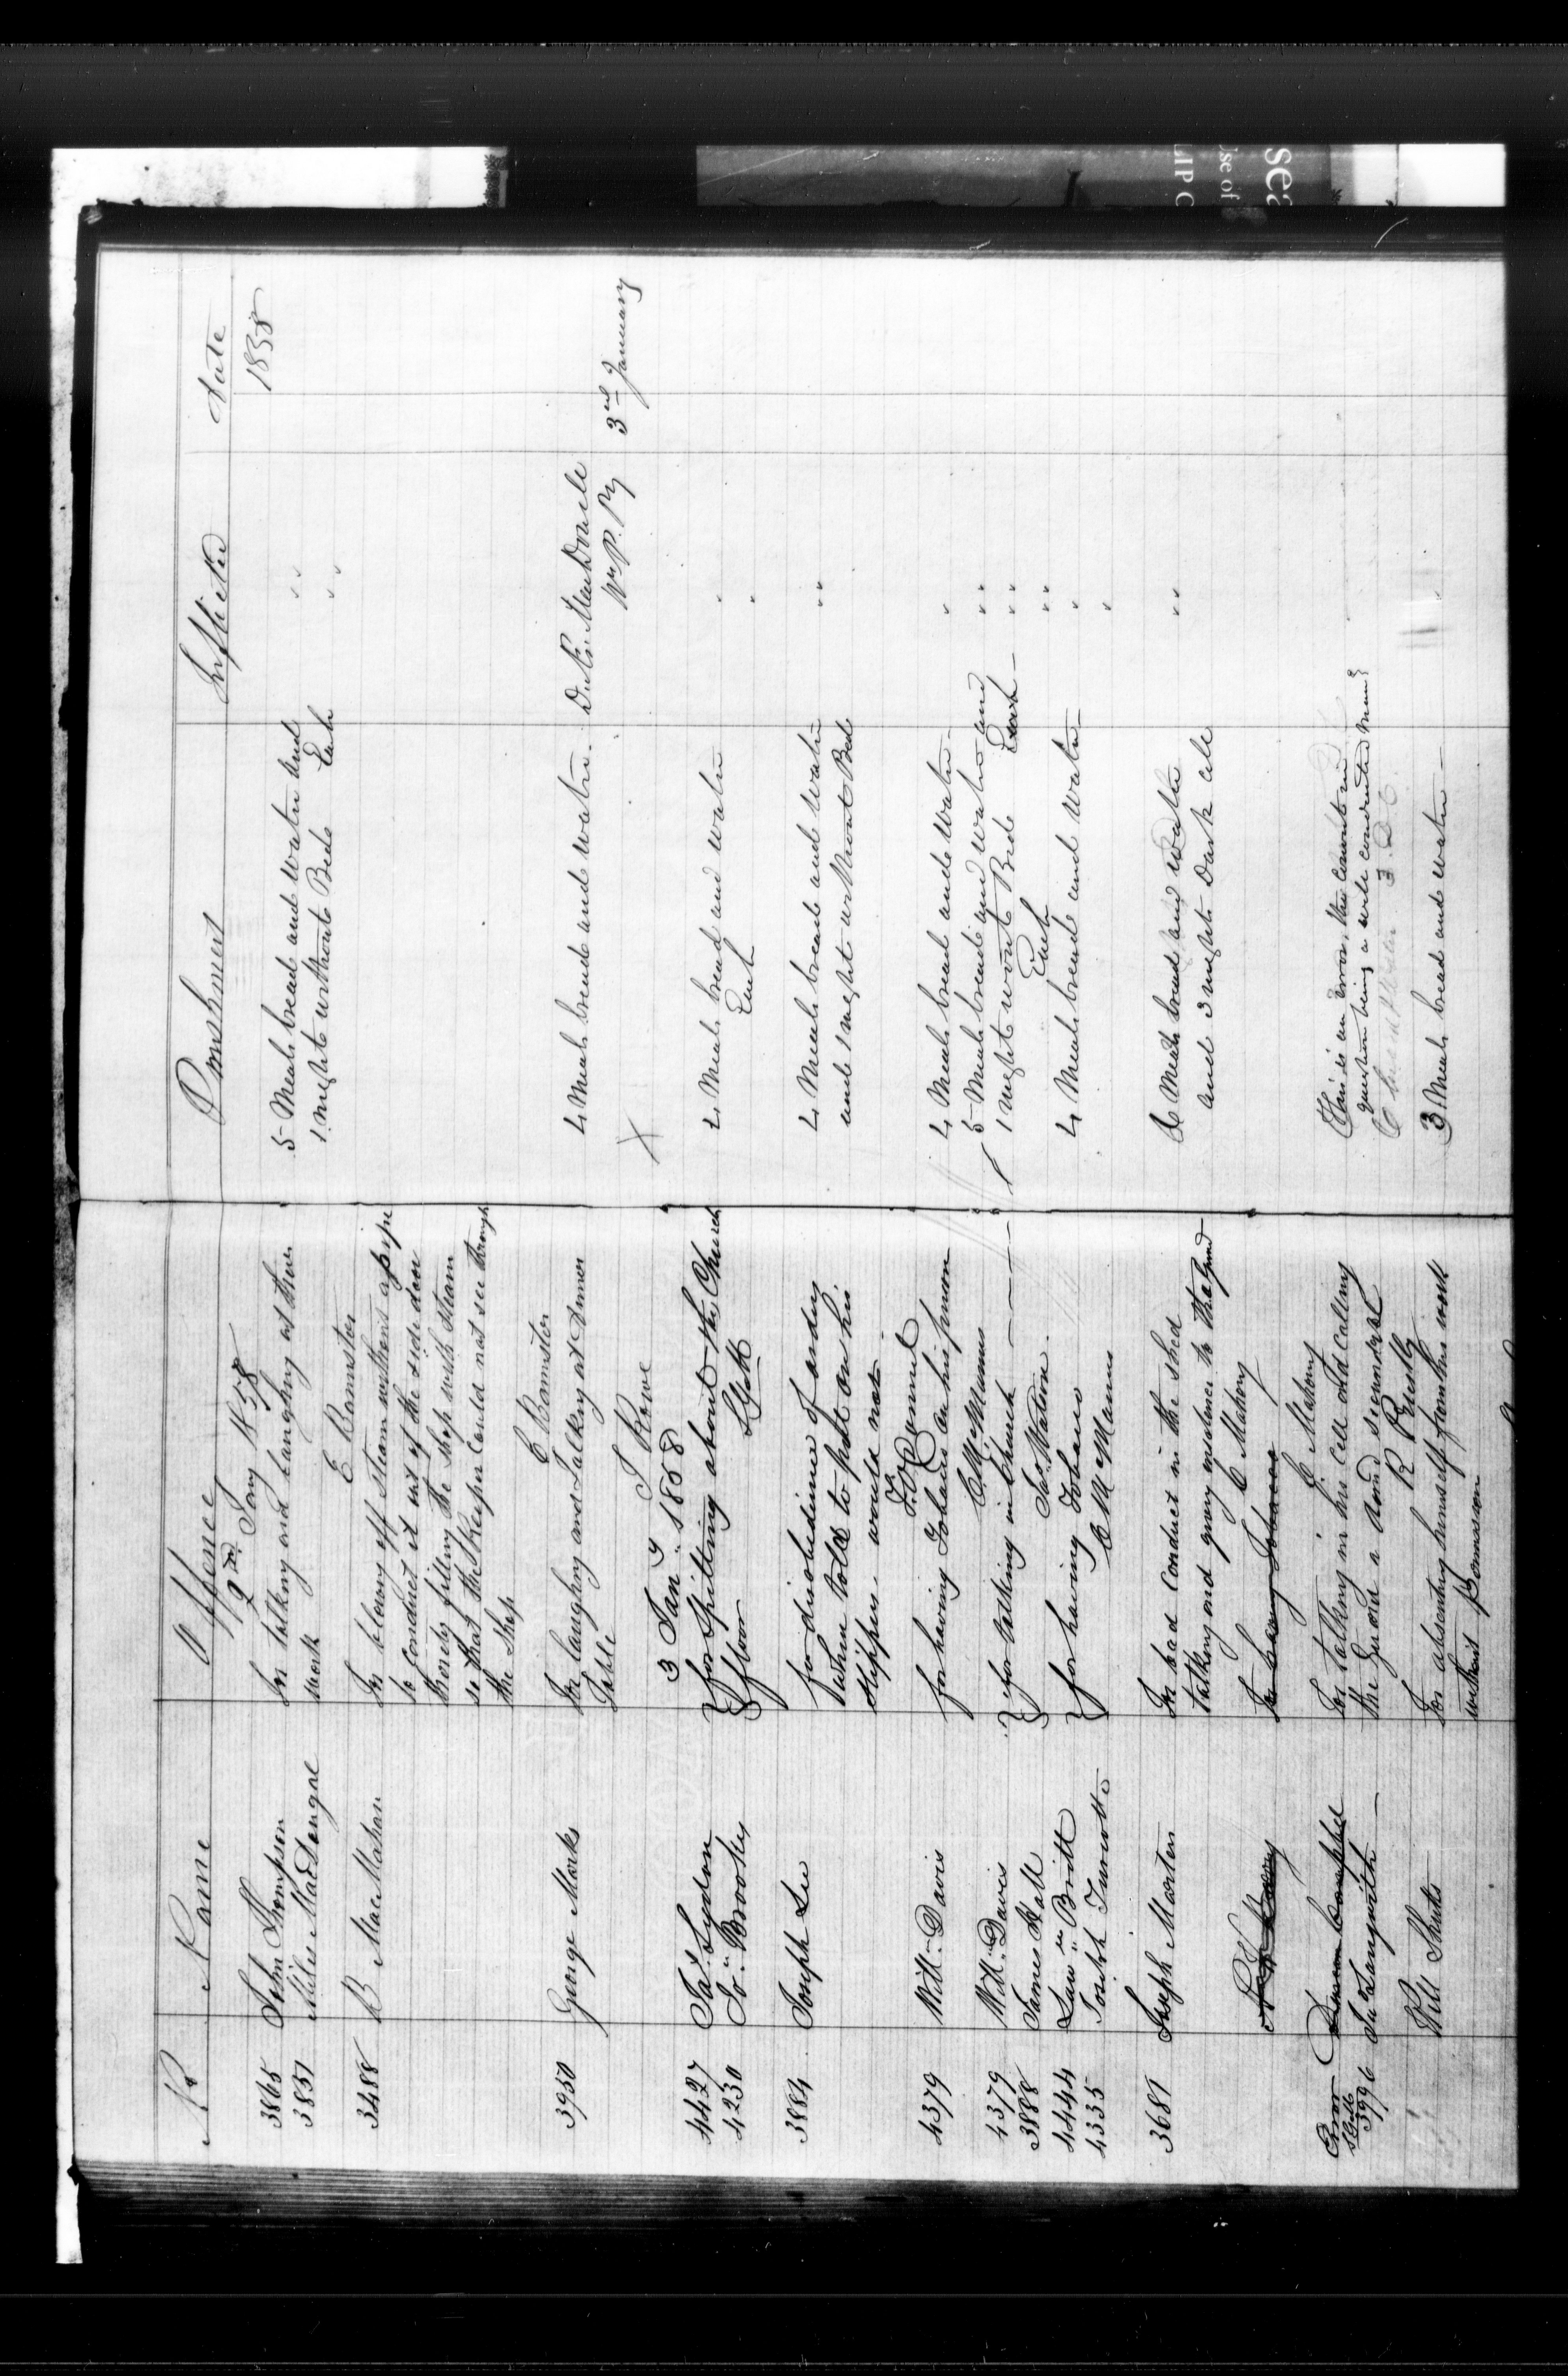 No Name Offence Punishment Inflicted Date
2nd Jany 1858 1858
3865 John Thompson For talking and laughing at their 5 Meals bread and water and "
3837 Miles MacDougal work 1 night without Bed Each "
E Bannister
3488 B MacMahon For blowing off steam without a pipe
to conduct it out of the side door
thereby filling the shop with steam
so that the Keeper could not see through
the Shop
E Bannister
3950 George Marks For laughing and talking at dinner 4 Meals bread and water.
Table Wn P. Py 3rd January
T Rowe
3 Jany 1858
4427 Jas Lydon for spitting about the Church 4 Meals bread and water "
4230 Jno Brooky floor Each "
3884 Joseph Lee for disobedience of orders 4 Meals bread and water "
when told to put on his and 1 night without Bed
slippers would not
4379 Will: Davis for having Tobacco on his person 4 Meals bread and water "
C McManus
4379 Will: Davis for talking in Church 5 Meals bread and water and "
3888 James Hall 1 night without Bed Each "
Jas Watson
4444 Law Britt for having Tobacco 4 Meals bread and water "
4335 Joseph Turcotte C McManus "
3687 Joseph Marten For bad conduct in the shed 6 Meals bread and water "
talking and giving insolence to the Guard and 3 nights Dark cell
C Mahony
For having Tobacco
C Mahony
Error Duncan Campbel For talking in his cell and calling This is an error, the convict in
3996 the Guard a damd scoundrel question being a well conducted man
R Priestly
Will Shuts For absenting himself from his work 3 Meals bread and water "
without Permission
sea
Use of
LIP C